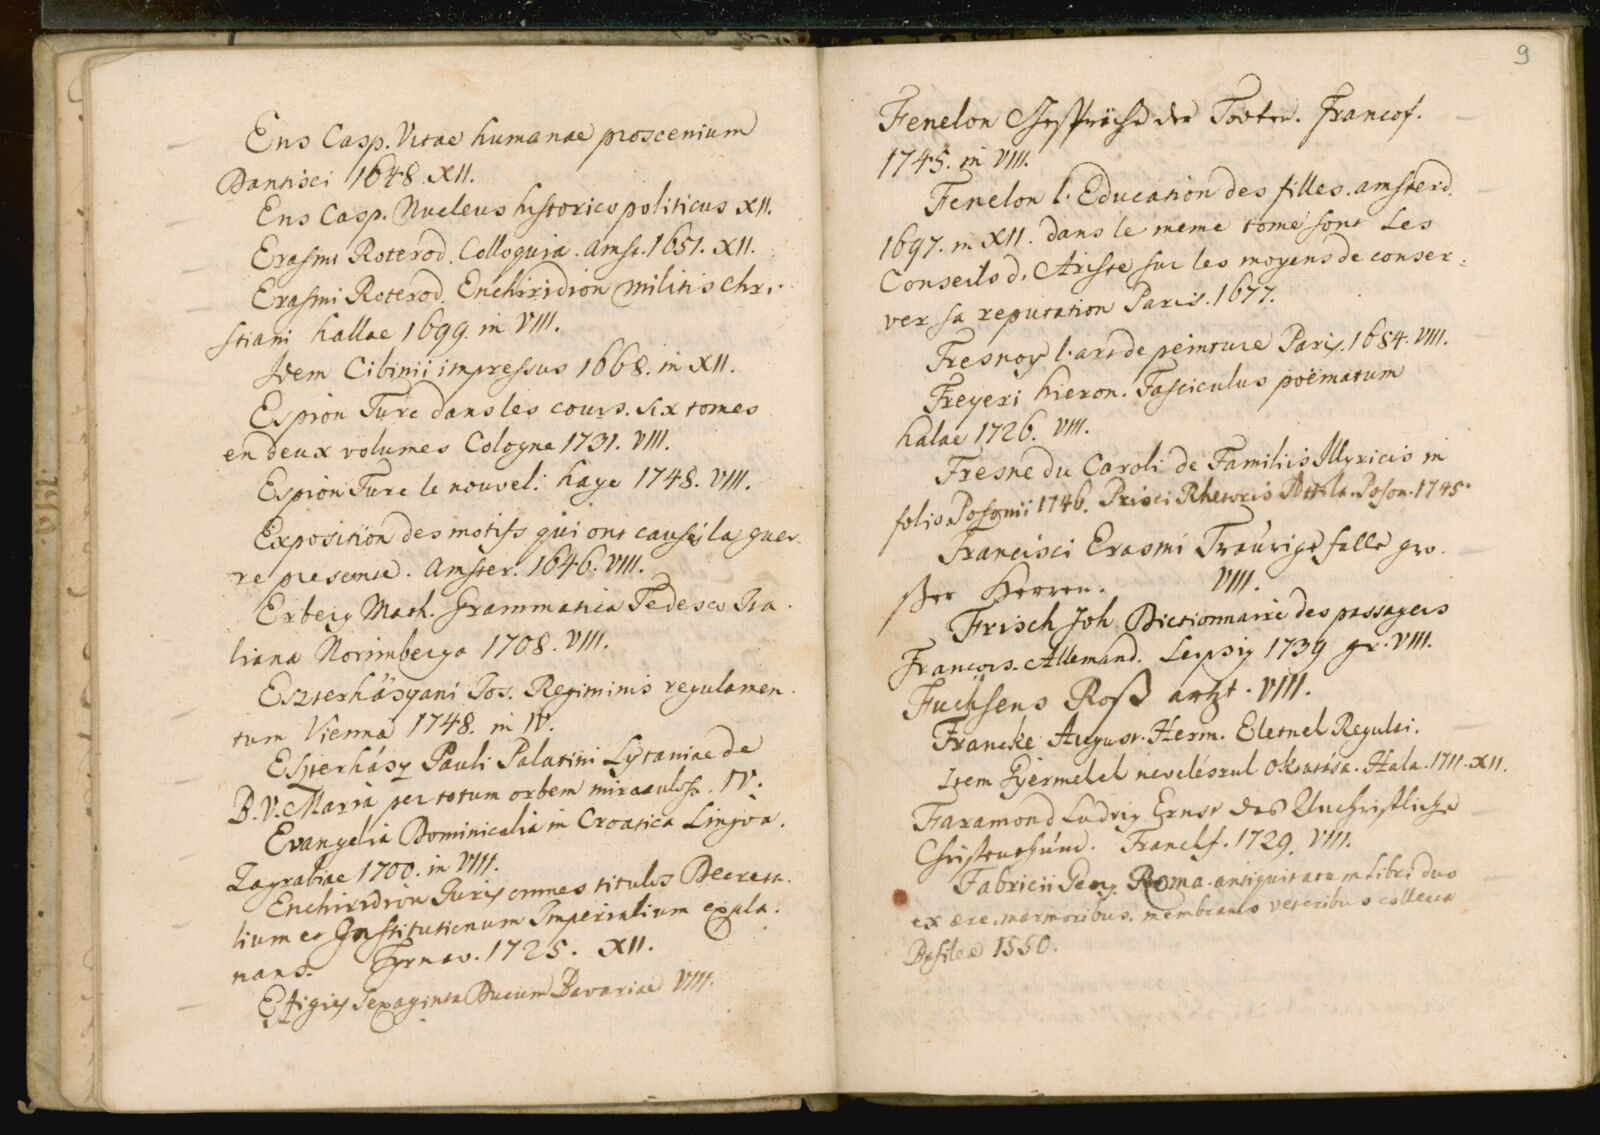 Ens Casp. Vitae humanae proscenium
Dantisci 1648. XII.
Ens Casp. Nucleus historico politicus XII.
Erasmi Roterod. Colloquia. Amst. 1651. XII.
Erasmi Roterod. Enchiridion militis Chri-
stiani hallae 1699. in VIII.
Idem Cibinii impressus 1668. in XII.
Espion Turc dans les cours. six tomes
en deux volumes Cologne 1731. VIII.
Espion Turc le nouvel: haye 1748. VIII.
Exposition des motifs qui ont causé la guer-
re presente. Amster. 1646. VIII.
Erberg Math. Grammatica Tedesco Ita-
liana Norimberga 1708. VIII.
Eszterhásyani Jos. Regiminis regulamen-
tum Vienna 1748. in IV.
Eszterhásy Pauli Palatini Lytaniae de
B. V. Maria per totum orbem miraculosa. IV.
Evangelia Dominicalia in Croatica Lingva.
Zagrabiae 1700. in VIII.
Enchiridion Juris omnes titulos Decreta-
lium et Institutionum Imperialium expla-
nans. Tyrnav. 1725. XII.
Effigies Sexaginta Ducum Bavariae VIII.
9
Fenelon Gespräche der Todten. Francof.
1745. in VIII.
Fenelon l'Education des filles. amsterd.
1697. in XII. dans le meme tome sont Les
Conseils d'Ariste sur les moyens de conser-
ver sa reputation Paris. 1677.
Fresnoy l'art de peinture Paris. 1684. VIII.
Freyeri hieron. Fasciculus poëmatum
halae 1726. VIII.
Fresne du Caroli de Familiis Illyricis in
folio Posonii 1746. Prisci Rhetoris Attila. Poson. 1745.
Francisci Erasmi Traurige fälle gro-
ßer Herren. VIII.
Frisch Joh Dictionnaire des passagers
Francois-Allemand. Leipsig 1739 gr. VIII.
Fuchsens Roß artzt. VIII.
Francke August. Herm. Eletnel Regulai.
Item Gyermekek nevelésrul Oktatása. Hala. 1711. XII.
Faramond Ludvig Ernst das Unchristliche
Christenthum. Franckf. 1729. VIII.
Fabricii Georg. Roma. antiquitatum libri duo
ex aere, marmoribus, membranis veteribus collecta
Basileae 1550.